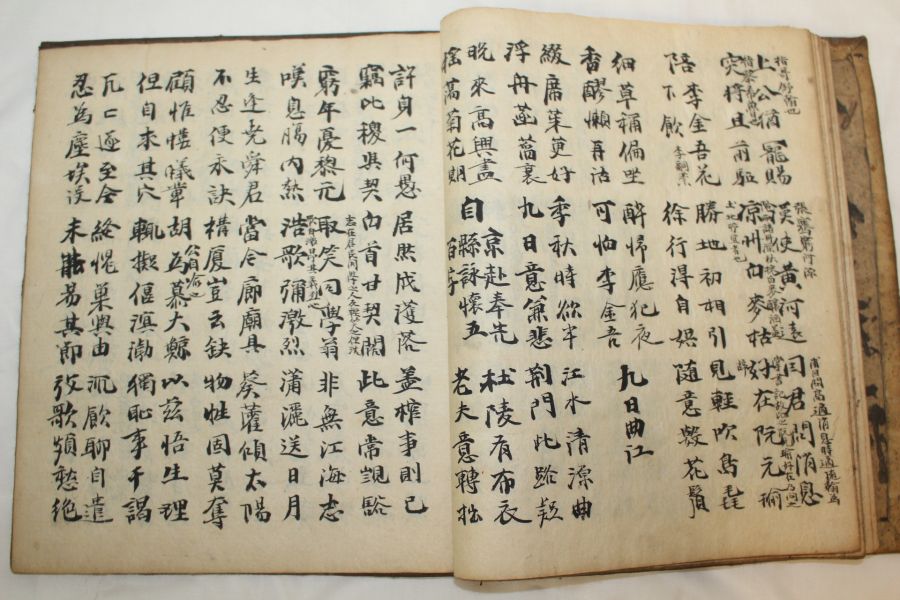 上公猶寵賜 漢使黃河遠 因君問消息
指哥舒翰也
突將且前驅 涼州白麥枯 好在阮元瑜
李金吾花 勝地初相引 見輕吹鳥毳
陪下飲 李嗣業 徐行得自娛 隨意數花鬚
細草稱偏坐 醉歸應犯夜 九日曲江
香醪懶再沽 可怕李金吾
綴席茱更好 季秋時欲半 江水清源曲
浮舟菡萏衰 九日意兼悲 荊門此路疑
晚來高興盡 京赴奉先 杜陵有布衣
搖蕩菊花期 自縣詠懷五百字 老夫意轉拙
許身一何愚 居然成濩落 蓋棺事則已
竊比稷與契 白首甘契闊 此意常覬豁
窮年憂黎元 取笑同學翁 非無江海志
嘆息腸內熱 浩歌彌激烈 蕭灑送日月
生逢堯舜君 當今廊廟具 葵藿傾太陽
不忍便永訣 構廈豈云缺 物性固莫奪
顧惟螻蟻輩 胡為慕大鯨 以茲悟生理
但自求其穴 輒擬偃溟渤 獨恥事干謁
兀兀遂至今 終愧巢與由 沉飲聊自遣
忍為塵埃沒 未能易其節 放歌頗愁絕